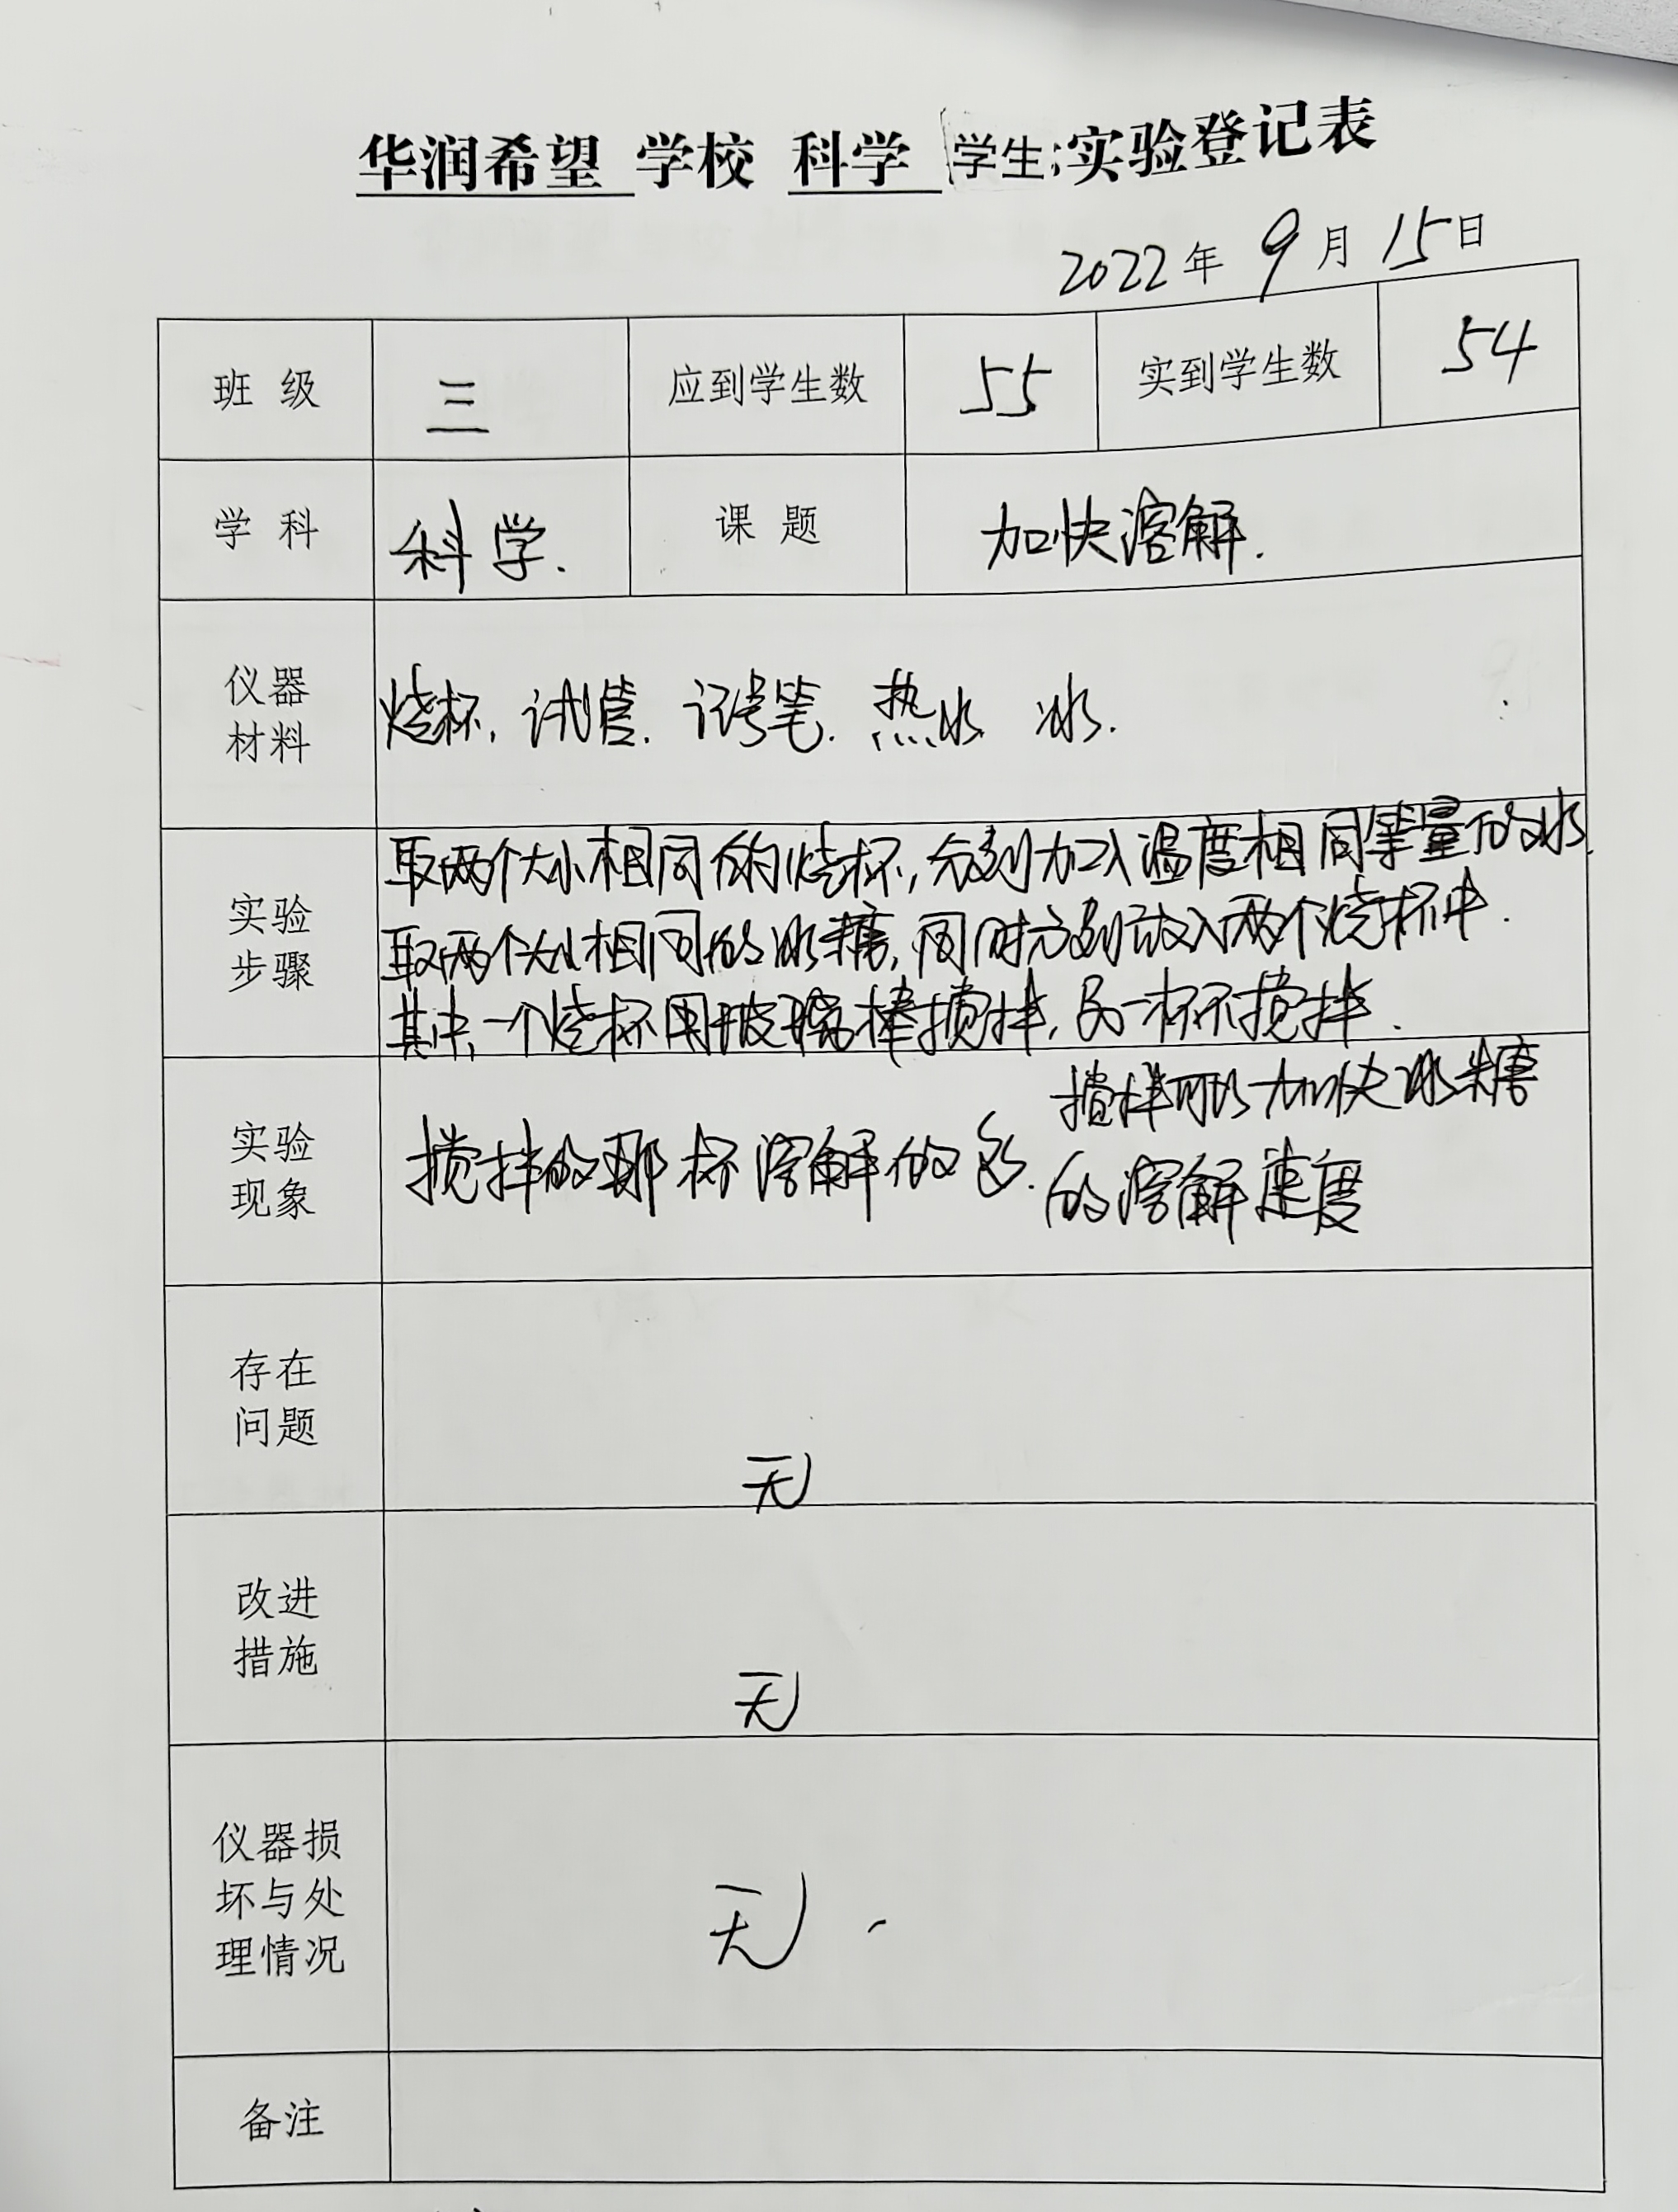 华润希望 学校 科学 学生 实验登记表
2022年 9月 15日
班 级 三 应到学生数 55 实到学生数 54
学 科 科学. 课 题 加快溶解.
仪器
材料
烧杯, 试管. 记号笔. 热水 冰.
实验
步骤
取两个大小相同的烧杯, 分别加入温度相同等量的水.
取两个大小相同的冰糖, 同时分别放入两个烧杯中.
其中一个烧杯用玻璃棒搅拌, 另一杯不搅拌.
实验
现象
搅拌的那杯溶解的多.
搅拌可以加快冰糖
的溶解速度
存在
问题
无
改进
措施
无
仪器损
坏与处
理情况
无
备注